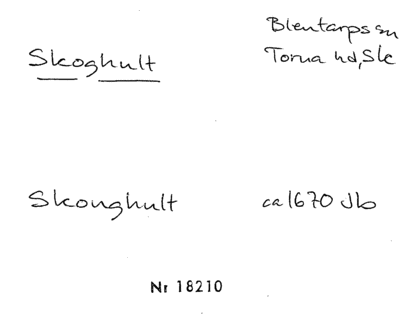 Blentarps sn
Skoghult Torna hd, Sk
Skonghult ca 1670 Jb
Nr 18210